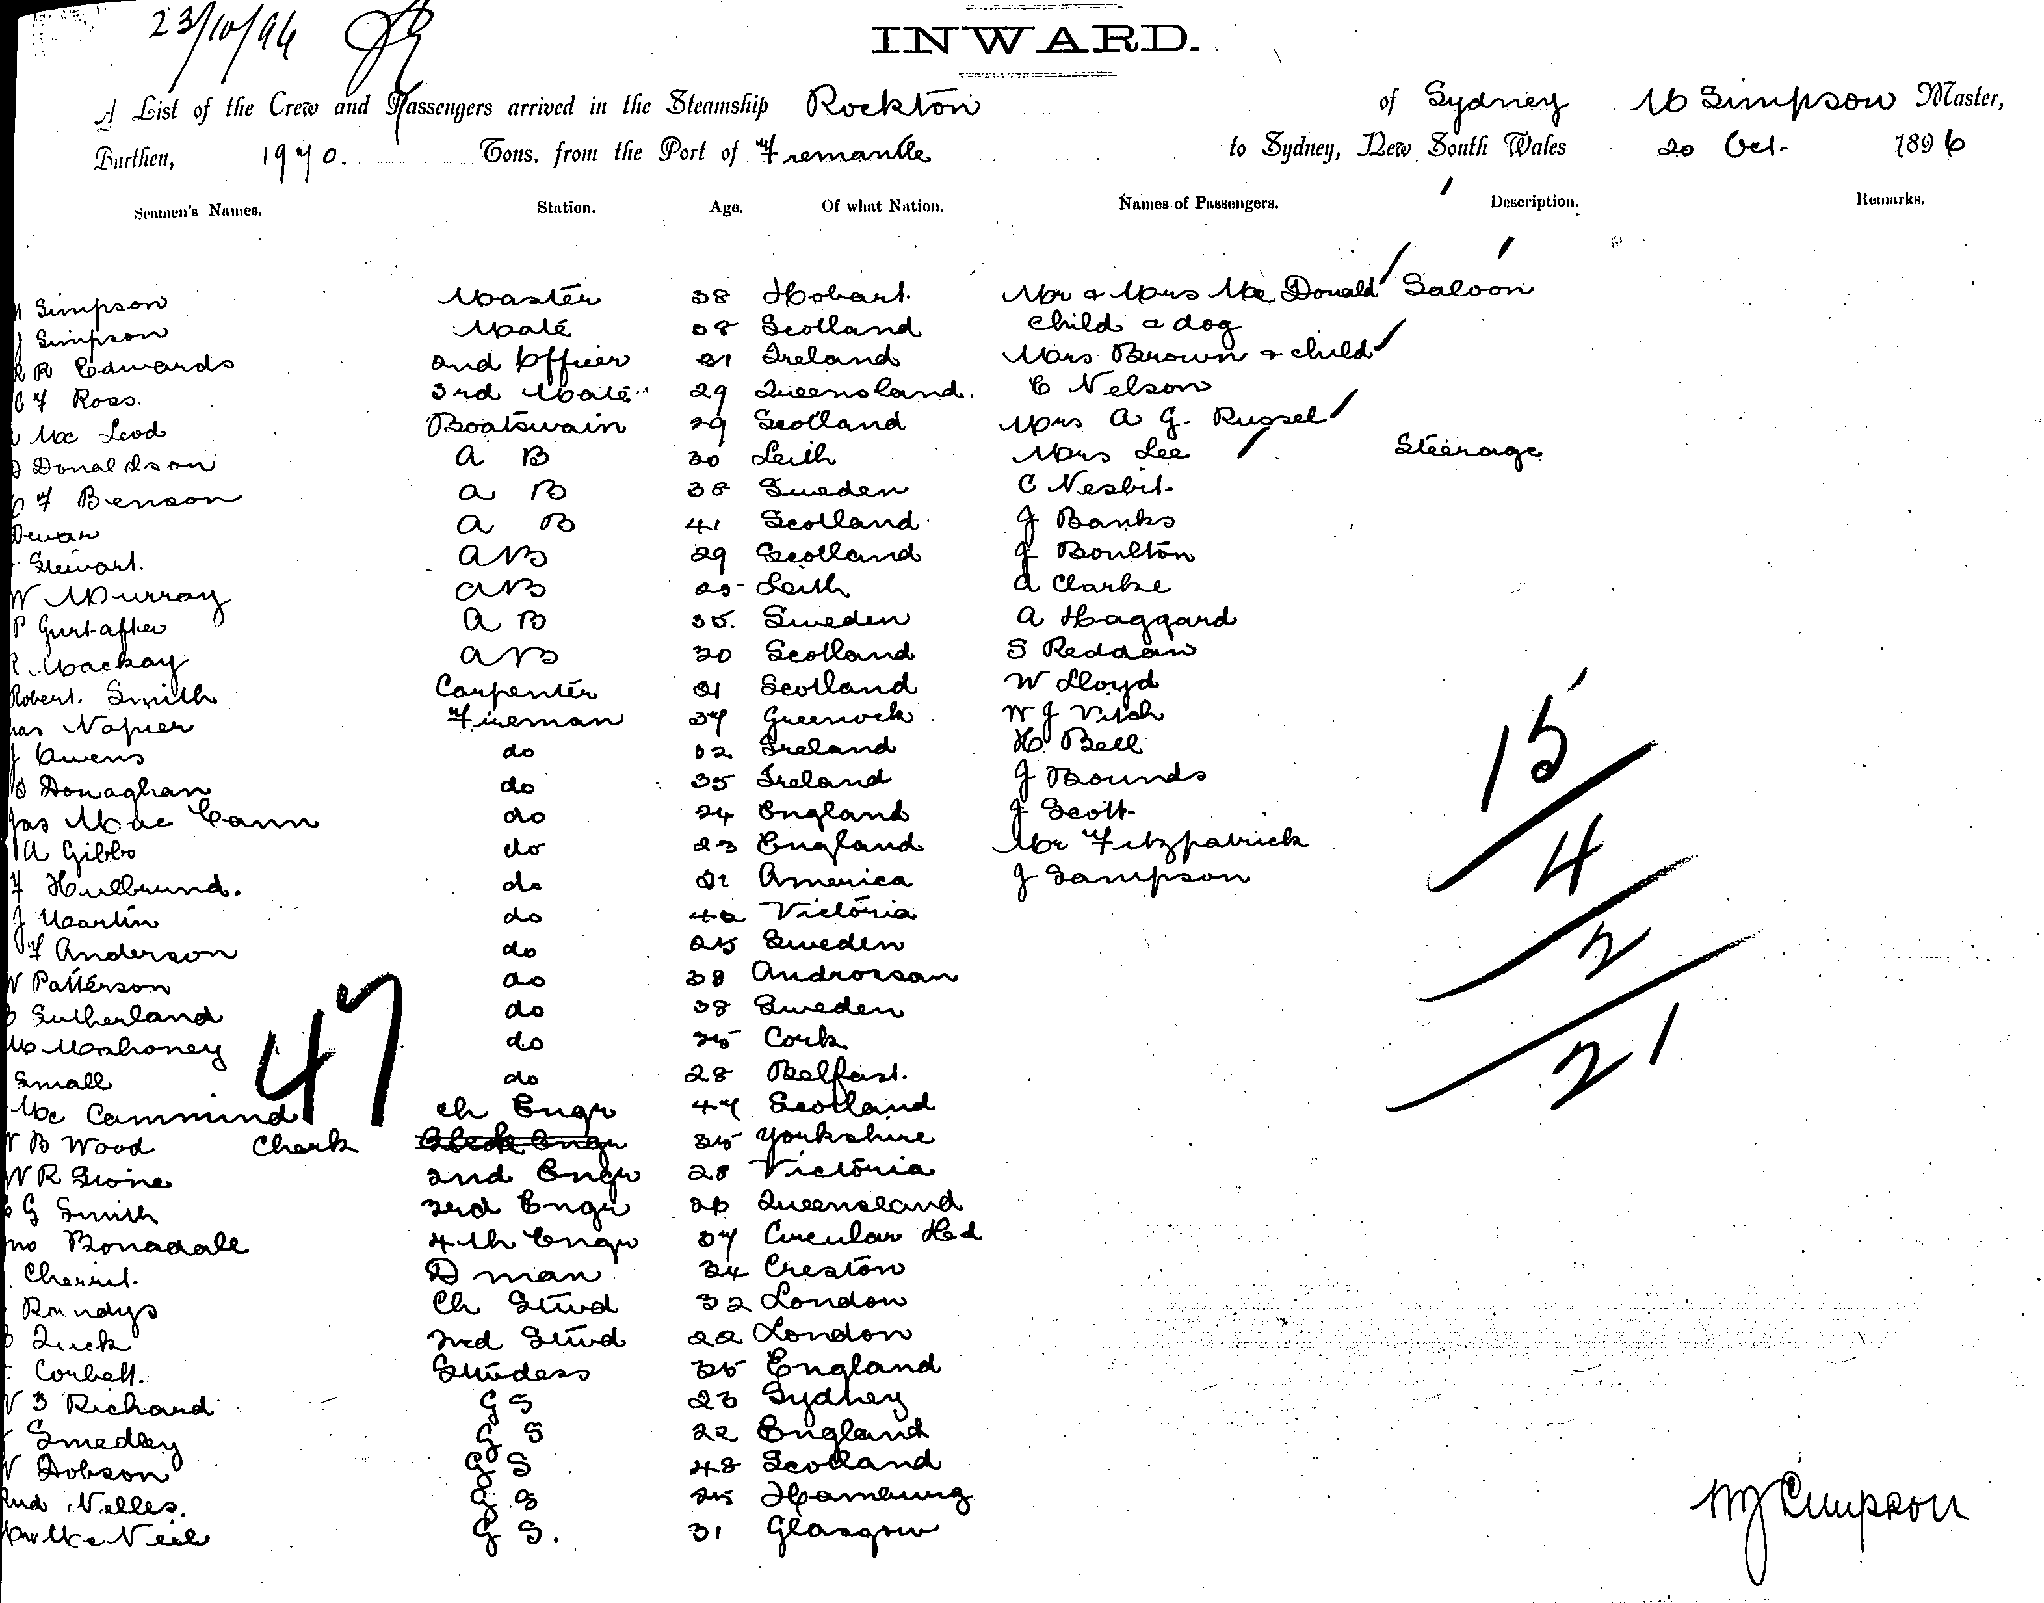 23/10/96
INWARD.
A List of the Crew and Passengers arrived in the Steamship Rockton of Sydney Simpson Master,
Burthen, 1970. Tons. from the Port of Fremantle to Sydney, New South Wales 20 Oct. 1896
Seamen's Names. Station. Age. Of what Nation. Names of Passengers. Description. Remarks.
Simpson Master 38 Hobart. Mr & Mrs Mc Donald Saloon
Simpson Mate Scotland child & dog
R Edwards 2nd Officer 31 Ireland Mrs Brown & child
F Ross. 3rd Mate 29 Queensland. C Nelson
Mc Leod Boatswain 29 Scotland Mrs A G. Russel
Donaldson A B 30 Leith Mrs Lee Steerage
F Benson A B 38 Sweden C Nesbit.
Dewar A B 41 Scotland J Banks
Stewart. AB 29 Scotland J Boulton
W Murray AB 25 Leith A Clarke
P A B 35. Sweden A Haggard
R Mackay AB 30 Scotland S Reddan
Robert. Smith Carpenter 31 Scotland W Lloyd
Napier Fireman 37 Greenock W J
J Owens do 32 Ireland H Bell
Donaghan do 35 Ireland J Bounds
Jas Mac Cann do 24 England J Scott
A Gibbs do 23 England Mr Fitzpatrick
F do America J Sampson
J Martin do 42 Victoria
F Anderson do 25 Sweden
W Patterson do 38 Androssan
Sutherland do 38 Sweden
M Mahoney do 25 Cork
Small do 28 Belfast.
Mc Cammind ch Engr 47 Scotland
W B Wood Check Engr 25 Yorkshire
W R Stone 2nd Engr 28 Victoria
G Smith 3rd Engr 26 Queensland
Bonadale 4th Engr 37 Circular Hed
D man 34 Creston
Ch Stwd 32 London
Quick 2nd Stwd 22 London
Corbett. Stwdess 35 England
Richard G S 23 Sydney
Smedley G S 22 England
W Hobson G S 48 Scotland
Nelles. G S 25 Hamburg
Mc Neil G S. 31 Glasgow
47
15
4
2
21
Simpson